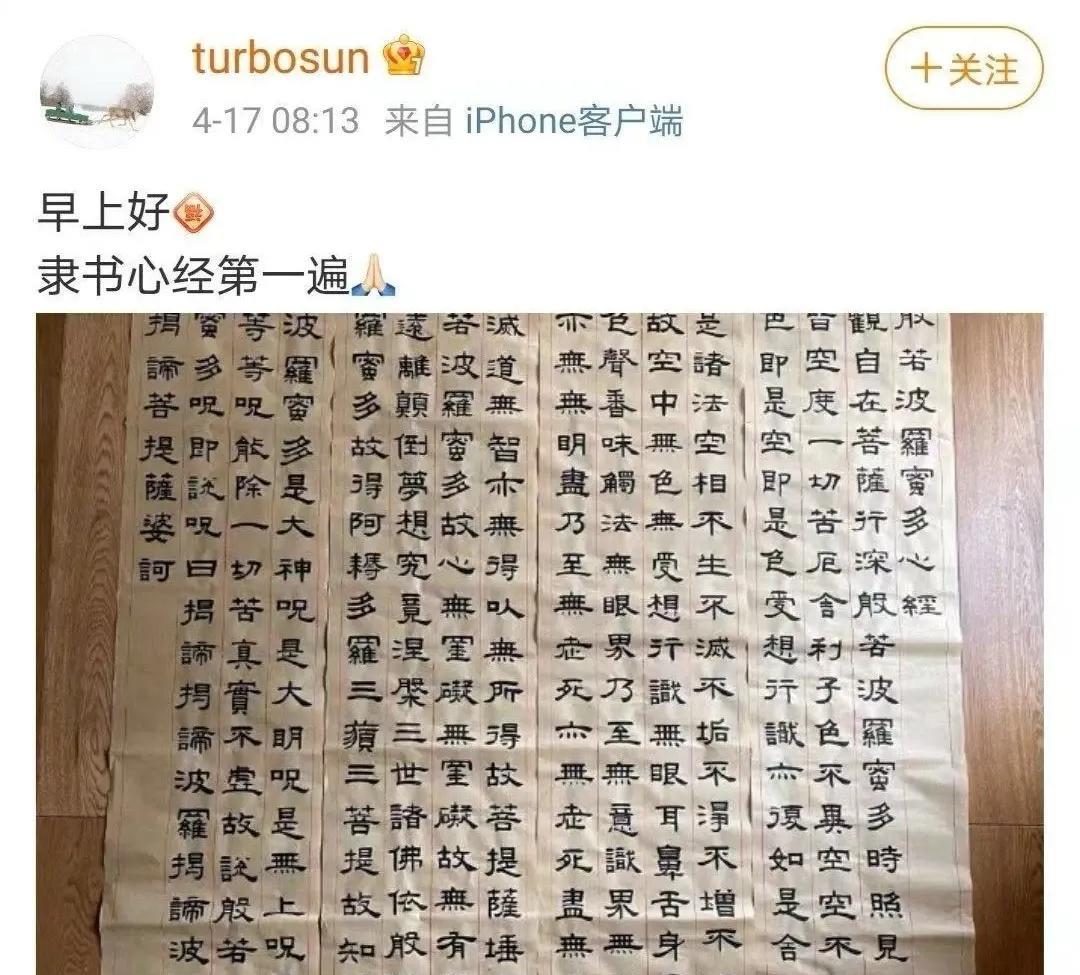 turbosun
+关注
4-17 08:13 来自 iPhone客户端
早上好
隶书心经第一遍
般若波羅蜜多心經
觀自在菩薩行深般若波羅蜜多時照見
皆空度一切苦厄舍利子色不異空空不
色即是空即是色受想行識亦復如是舍
是諸法空相不生不滅不垢不淨不增不
故空中無色無受想行識無眼耳鼻舌身
色聲香味觸法無眼界乃至無意識界無
亦無無明盡乃至無老死亦無老死盡無
滅道無智亦無得以無所得故菩提薩埵
若波羅蜜多故心無罣礙無罣礙故無有
遠離顛倒夢想究竟涅槃三世諸佛依般
羅蜜多故得阿耨多羅三藐三菩提故知
波羅蜜多是大神呪是大明呪是無上呪
等等呪能除一切苦真實不虛故說般若
蜜多呪即說呪曰揭諦揭諦波羅揭諦波
揭諦菩提薩婆訶